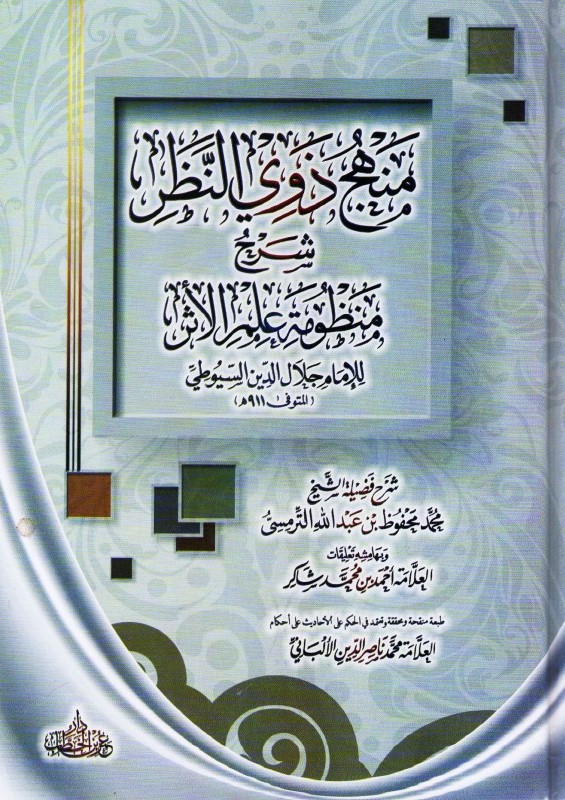 مَنهَجُ ذَوِي النَّظَرِ
شَرْحُ
مَنظُومَةِ عِلمِ الأَثَرِ
للإمام جلال الدين السيوطي
(المتوفى ٩١١هـ)
شرح فضيلة الشيخ
محمد محفوظ بن عبد الله الترمسي
وبهامشه تعليقات
العلامة أحمد بن محمد شاكر
طبعة منقحة ومحققة وتعتمد في الحكم على الأحاديث على أحكام
العلامة محمد ناصر الدين الألباني
دار
عمر بن الخطاب